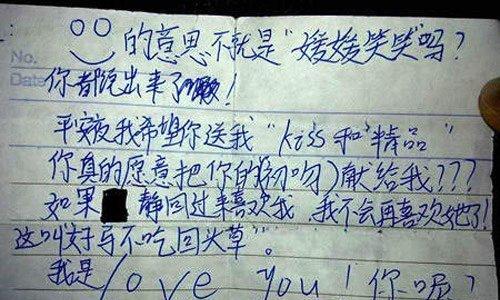 的意思不就是“媛媛笑笑”吗?
No.
Date
你都说出来了啊!
平安夜我希望你送我“kiss和精品”
你真的愿意把你的(初吻)献给我???
如果 静回过来喜欢我,我不会再喜欢她了!
这叫好马不吃回头草”。
我是love you!你呢?